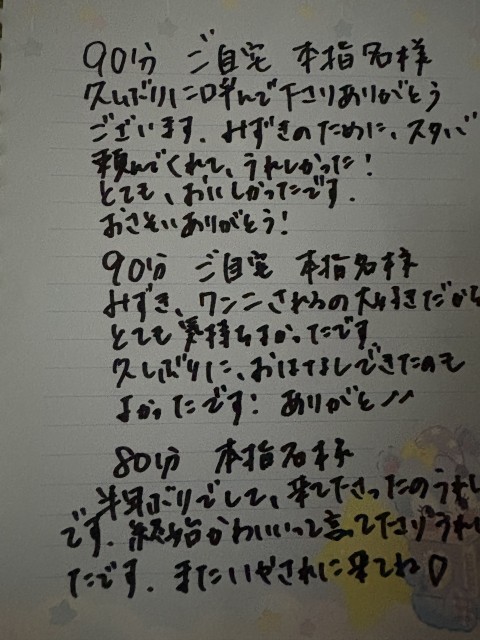 90分 ご自宅 本指名様
久しぶりに呼んで下さりありがとう
ございます。みずきのために、スタバ
頼んでくれて、うれしかった!
とても、おいしかったです。
おさそいありがとう!
90分 ご自宅 本指名様
みずき、ワンニされるの大好きだから
とても気持ちよかったです。
久しぶりに、おはなしできたのも
よかったです! ありがと
80分 本指名様
半年ぶりでして、来て下さったのうれし
です。終始かわいいって言って下さりうれし
たです。またいやされに来てね♡